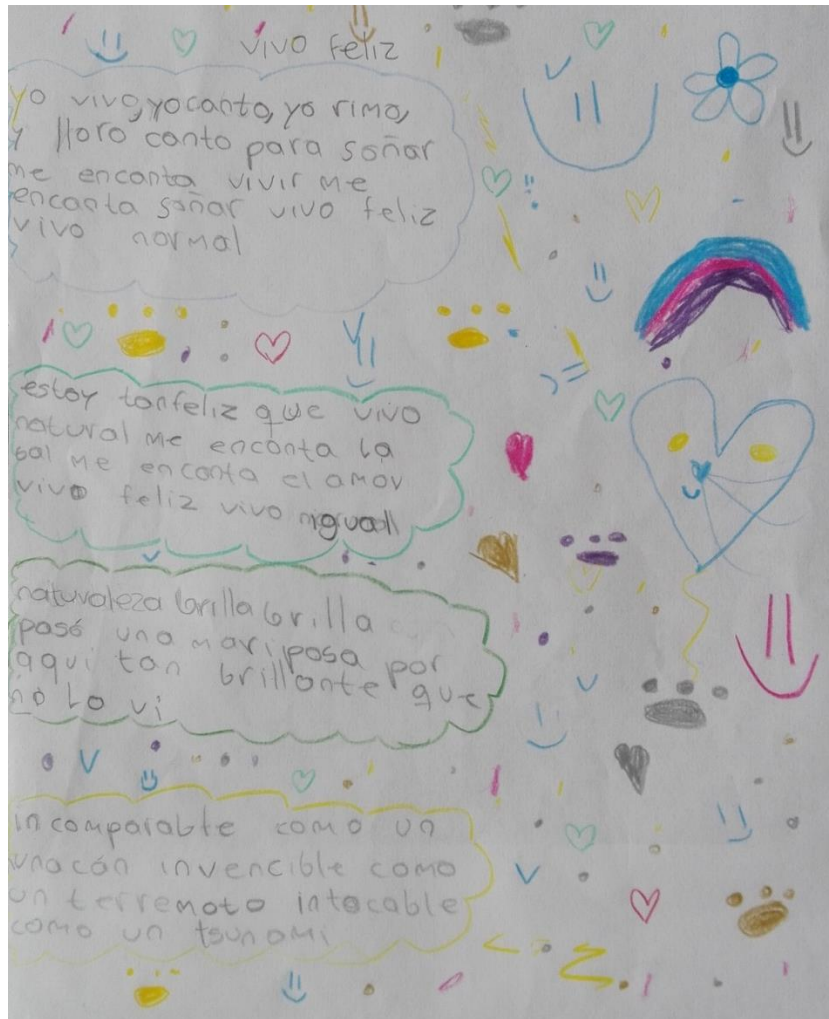 vivo feliz
yo vivo, yo canto, yo rimo,
y lloro canto para soñar
me encanta vivir me
encanta soñar vivo feliz
vivo normal
estoy tan feliz que vivo
natural me encanta la
sal me encanta el amor
vivo feliz vivo igual
naturaleza brilla brilla
pasó una mariposa por
aqui tan brillante que
no lo vi
incomparable como un
uracán invencible como
un terremoto intocable
como un tsunami